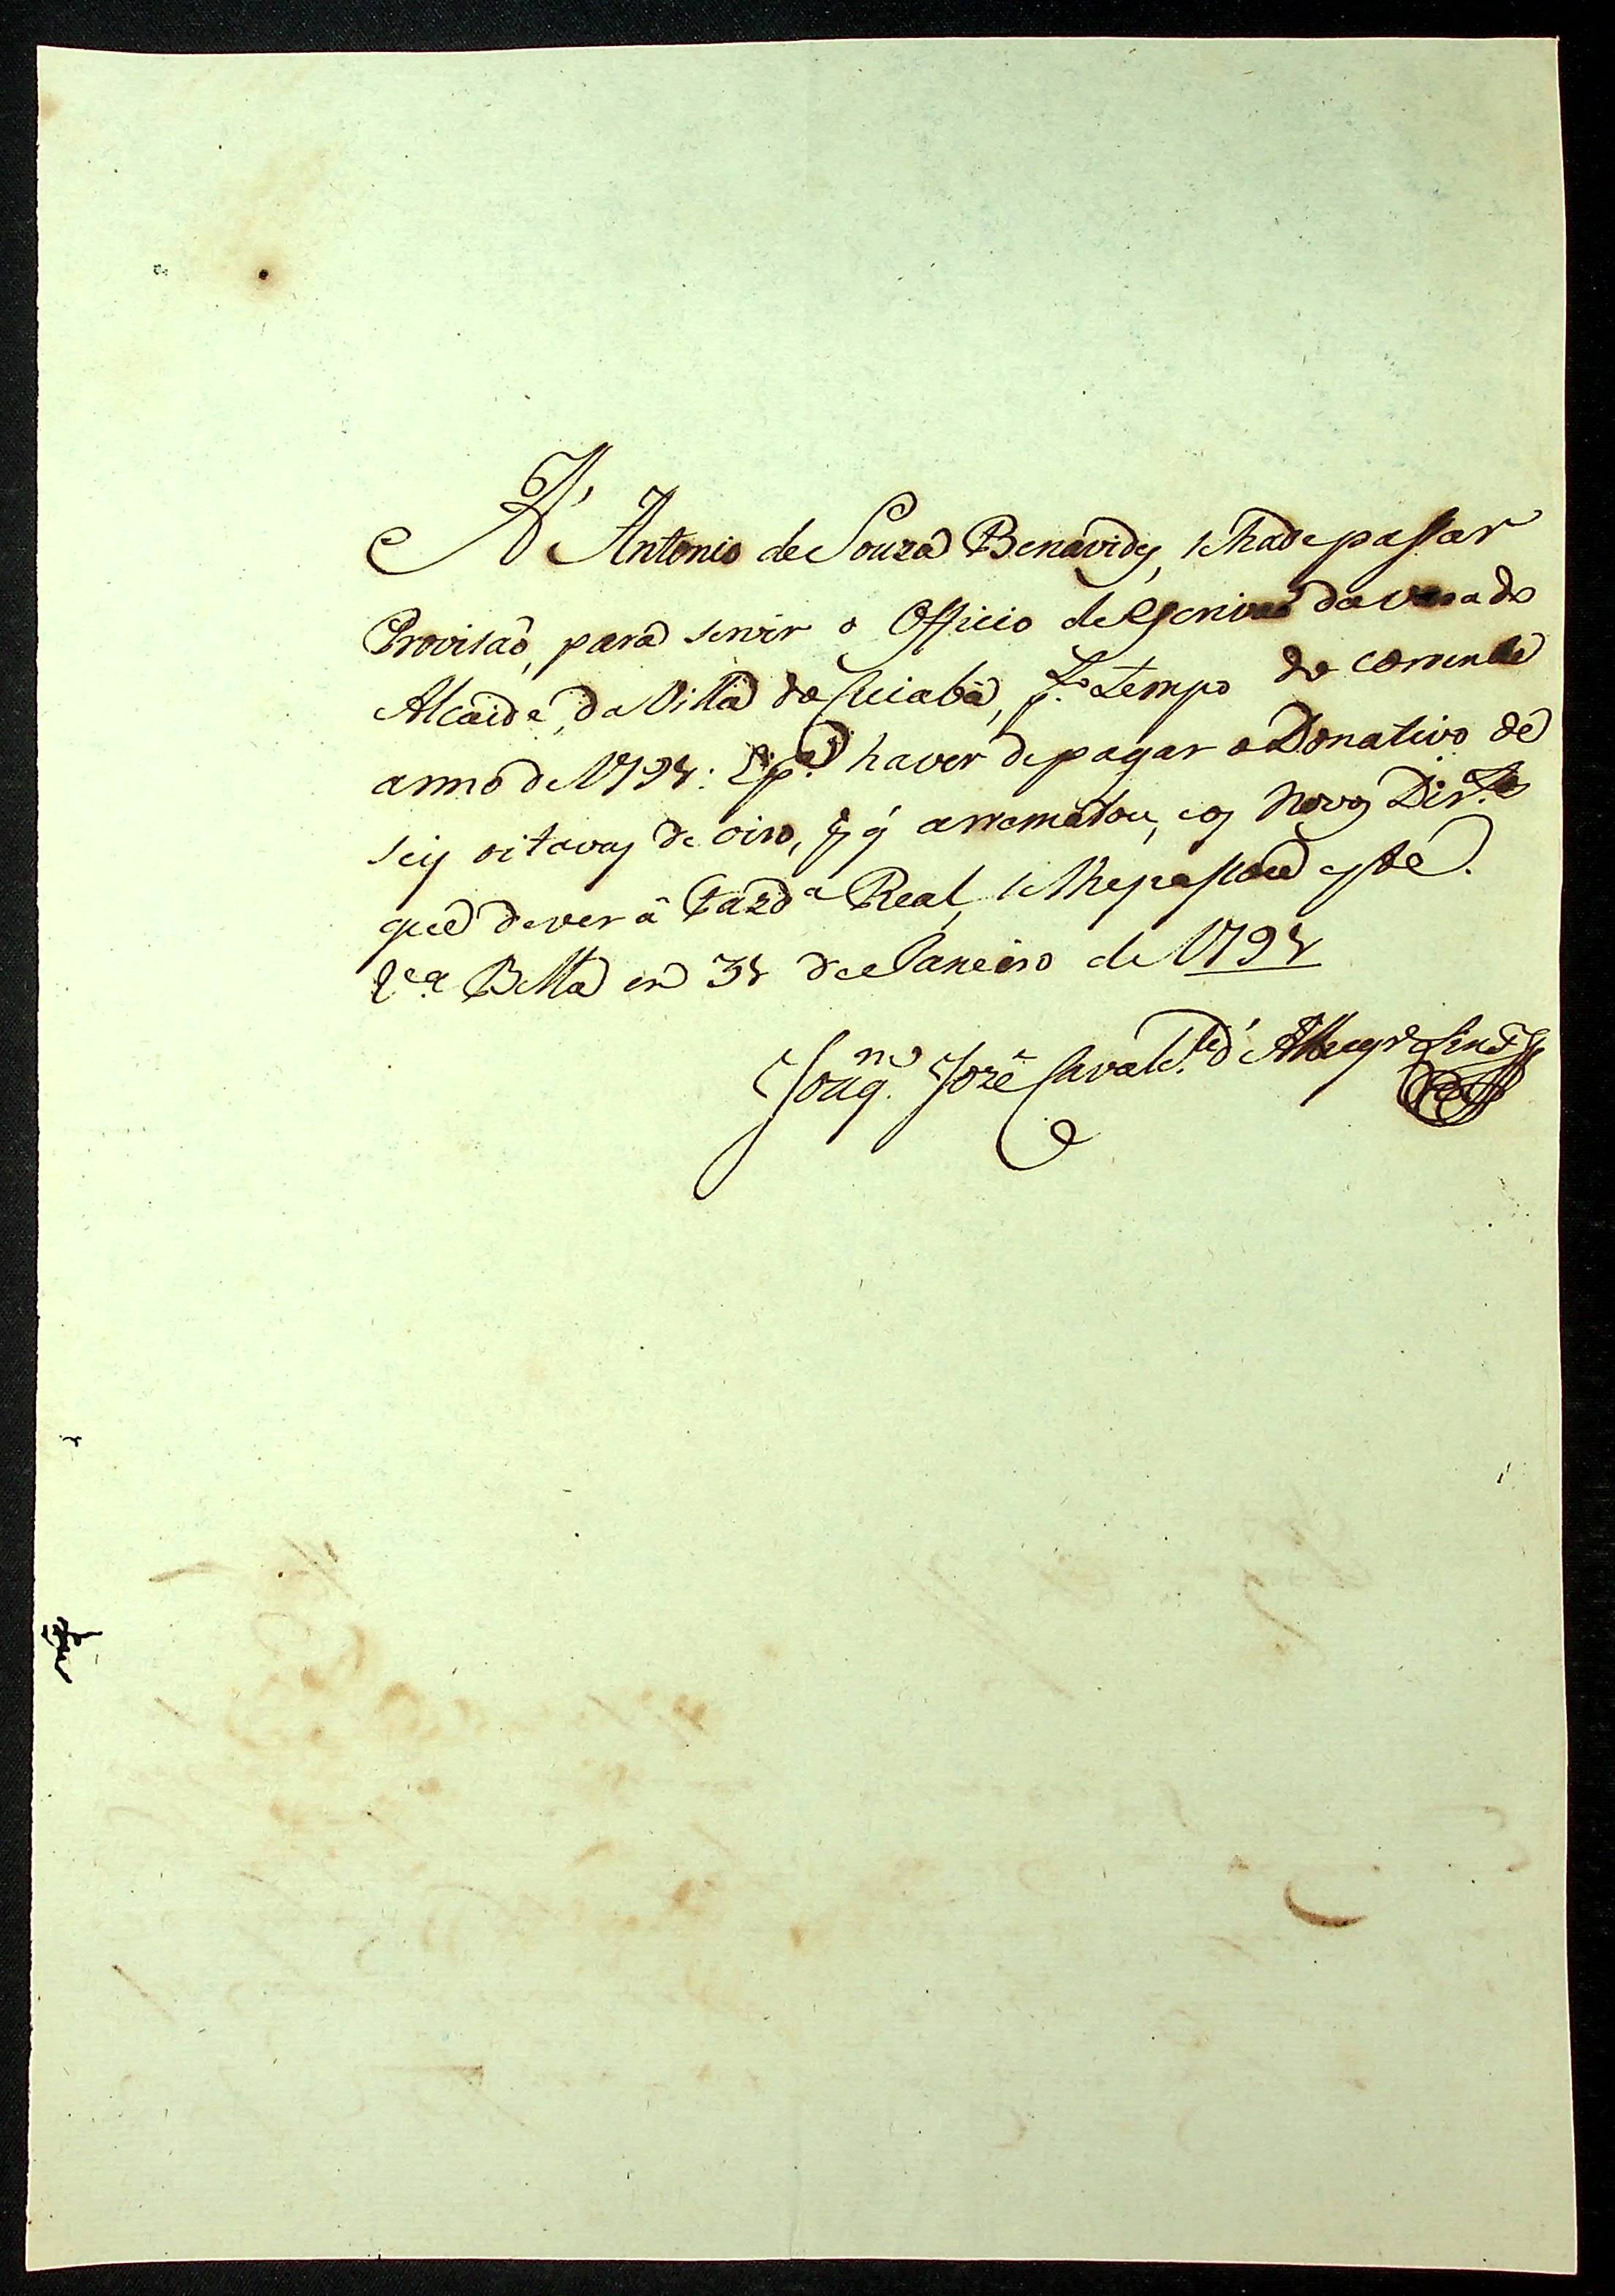 A' Antonio de Souza Benavides, se hade passar
Provisaõ, para servir o Officio de Escrivaõ da vara do
Alcaide, da Villa do Cuiabá, p.lo tempo do corrente
anno de 179: E p.a haver de pagar o Donativo de
seis oitavas de oiro, p.r q' arrematou, e os Novos Dir.tos
que dever á Fazd.a Real, se lhe passou este.
V.a Bella em de Janeiro de 179
Joaq.m José Cavalc.te d' Albuq.e Lins